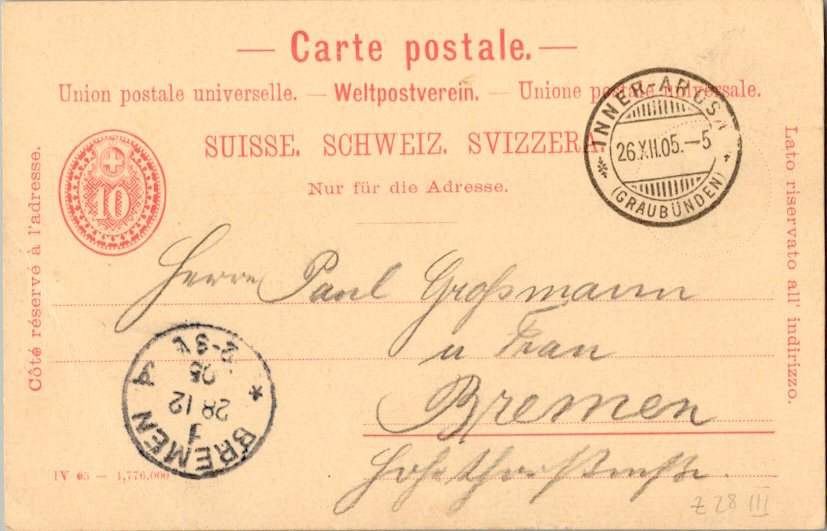 — Carte postale. —
Union postale universelle. — Weltpostverein. — Unione postale universale.
SUISSE. SCHWEIZ. SVIZZERA
Nur für die Adresse.
Côté réservé à l'adresse.
Lato riservato all' indirizzo.
10
INNER-AROSA
26.XII.05.–5
(GRAUBÜNDEN)
Herrn Paul Großmann
u Frau
Bremen
BREMEN
1
28 12
05
2-3 V.
A
IV 05 — 1,776,000
Z 28 III